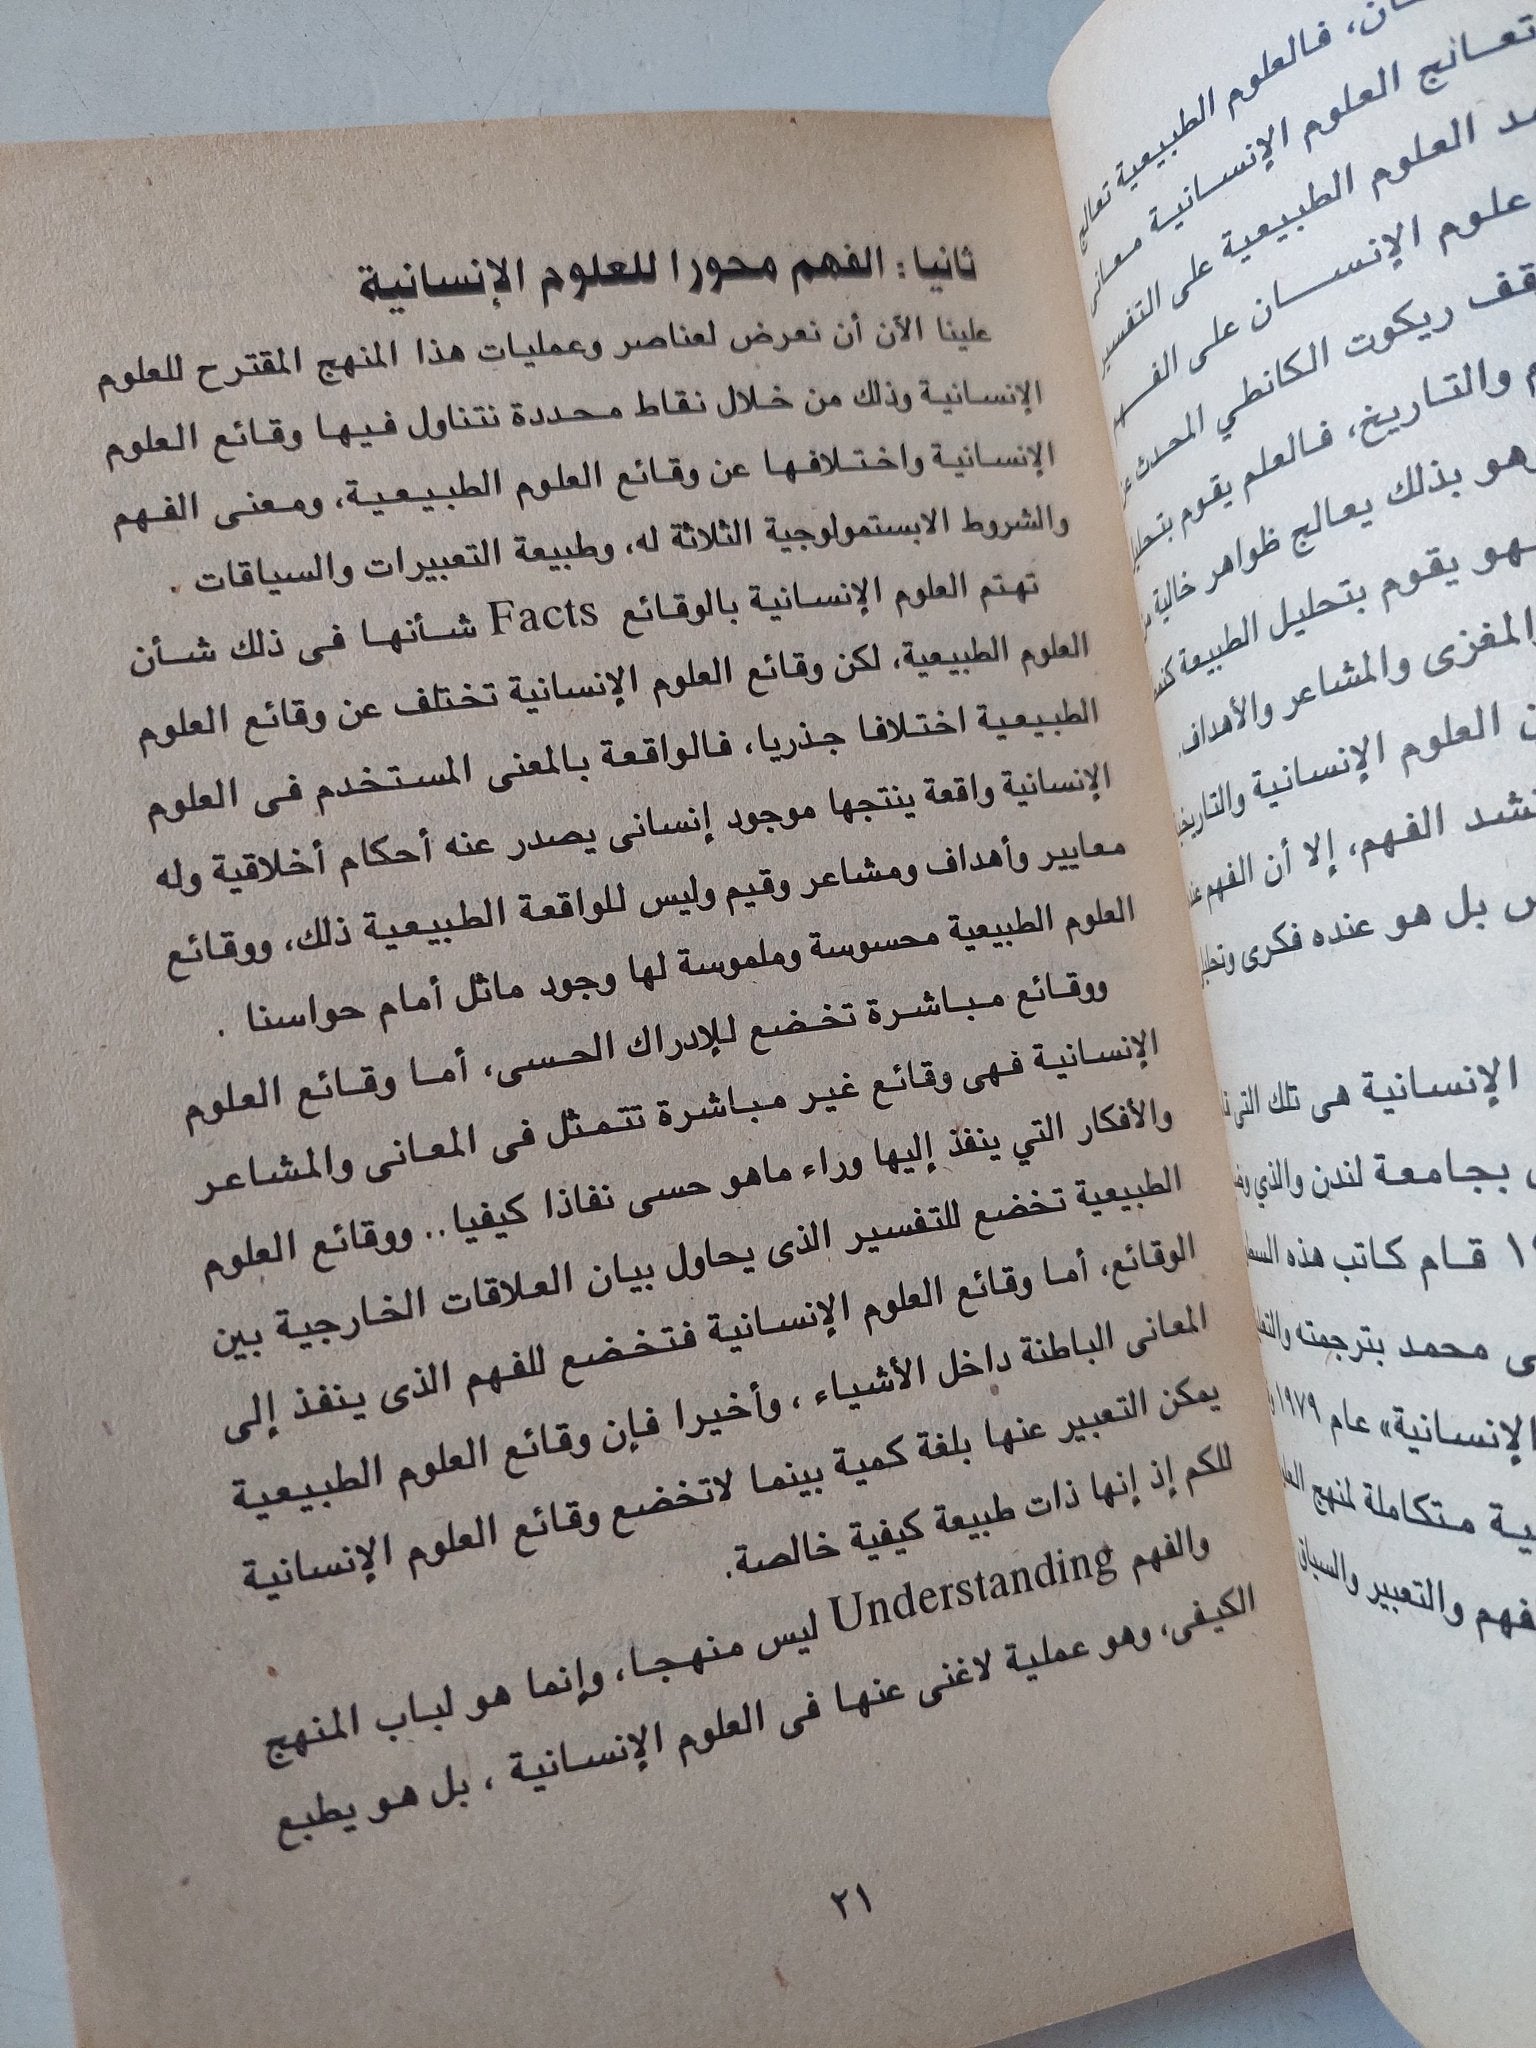 فالعلوم الطبيعية تعالج
العلوم الإنسانية معانى
العلوم الطبيعية على التفسير
علوم الإنسان على الفهم
ريكوت الكانطي المحدث
والتاريخ، فالعلم يقوم
وهو بذلك يعالج ظواهر خالية
يقوم بتحليل الطبيعة
والمغزى والمشاعر والأهداف.
العلوم الإنسانية
الفهم، إلا أن الفهم
بل هو عنده فكرى
الإنسانية هى تلك التى
بجامعة لندن والذي
قام كاتب هذه
محمد بترجمته
الإنسانية» عام ١٩٧٩
متكاملة لمنهج
والتعبير والسياق
ثانيا: الفهم محورا للعلوم الإنسانية
علينا الآن أن نعرض لعناصر وعمليات هذا المنهج المقترح للعلوم
الإنسانية وذلك من خلال نقاط محددة نتناول فيها وقائع العلوم
الإنسانية واختلافها عن وقائع العلوم الطبيعية، ومعنى الفهم
والشروط الابستمولوجية الثلاثة له، وطبيعة التعبيرات والسياقات .
تهتم العلوم الإنسانية بالوقائع Facts شأنها فى ذلك شأن
العلوم الطبيعية، لكن وقائع العلوم الإنسانية تختلف عن وقائع العلوم
الطبيعية اختلافا جذريا، فالواقعة بالمعنى المستخدم فى العلوم
الإنسانية واقعة ينتجها موجود إنسانى يصدر عنه أحكام أخلاقية وله
معايير وأهداف ومشاعر وقيم وليس للواقعة الطبيعية ذلك، ووقائع
العلوم الطبيعية محسوسة وملموسة لها وجود ماثل أمام حواسنا .
ووقائع مباشرة تخضع للإدراك الحسى، أما وقائع العلوم
الإنسانية فهى وقائع غير مباشرة تتمثل فى المعانى والمشاعر
والأفكار التي ينفذ إليها وراء ماهو حسى نفاذا كيفيا.. ووقائع العلوم
الطبيعية تخضع للتفسير الذى يحاول بيان العلاقات الخارجية بين
الوقائع، أما وقائع العلوم الإنسانية فتخضع للفهم الذى ينفذ إلى
المعانى الباطنة داخل الأشياء ، وأخيرا فإن وقائع العلوم الطبيعية
يمكن التعبير عنها بلغة كمية بينما لاتخضع وقائع العلوم الإنسانية
للكم إذ إنها ذات طبيعة كيفية خالصة.
والفهم Understanding ليس منهجا، وإنما هو لباب المنهج
الكيفى، وهو عملية لاغنى عنها فى العلوم الإنسانية ، بل هو يطبع
٢١